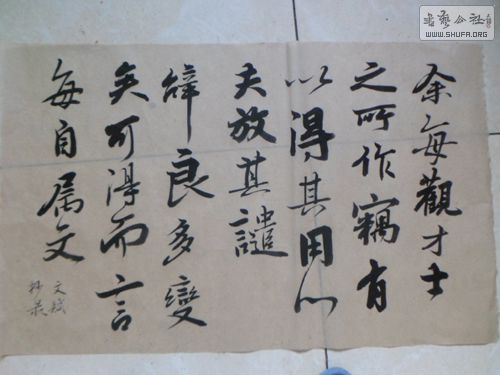 余每觀才士
之所作竊有
以得其用心
夫放其譴
辭良多變
矣可得而言
每自属文
文斌
抄录
書藝公社
WWW.SHUFA.ORG